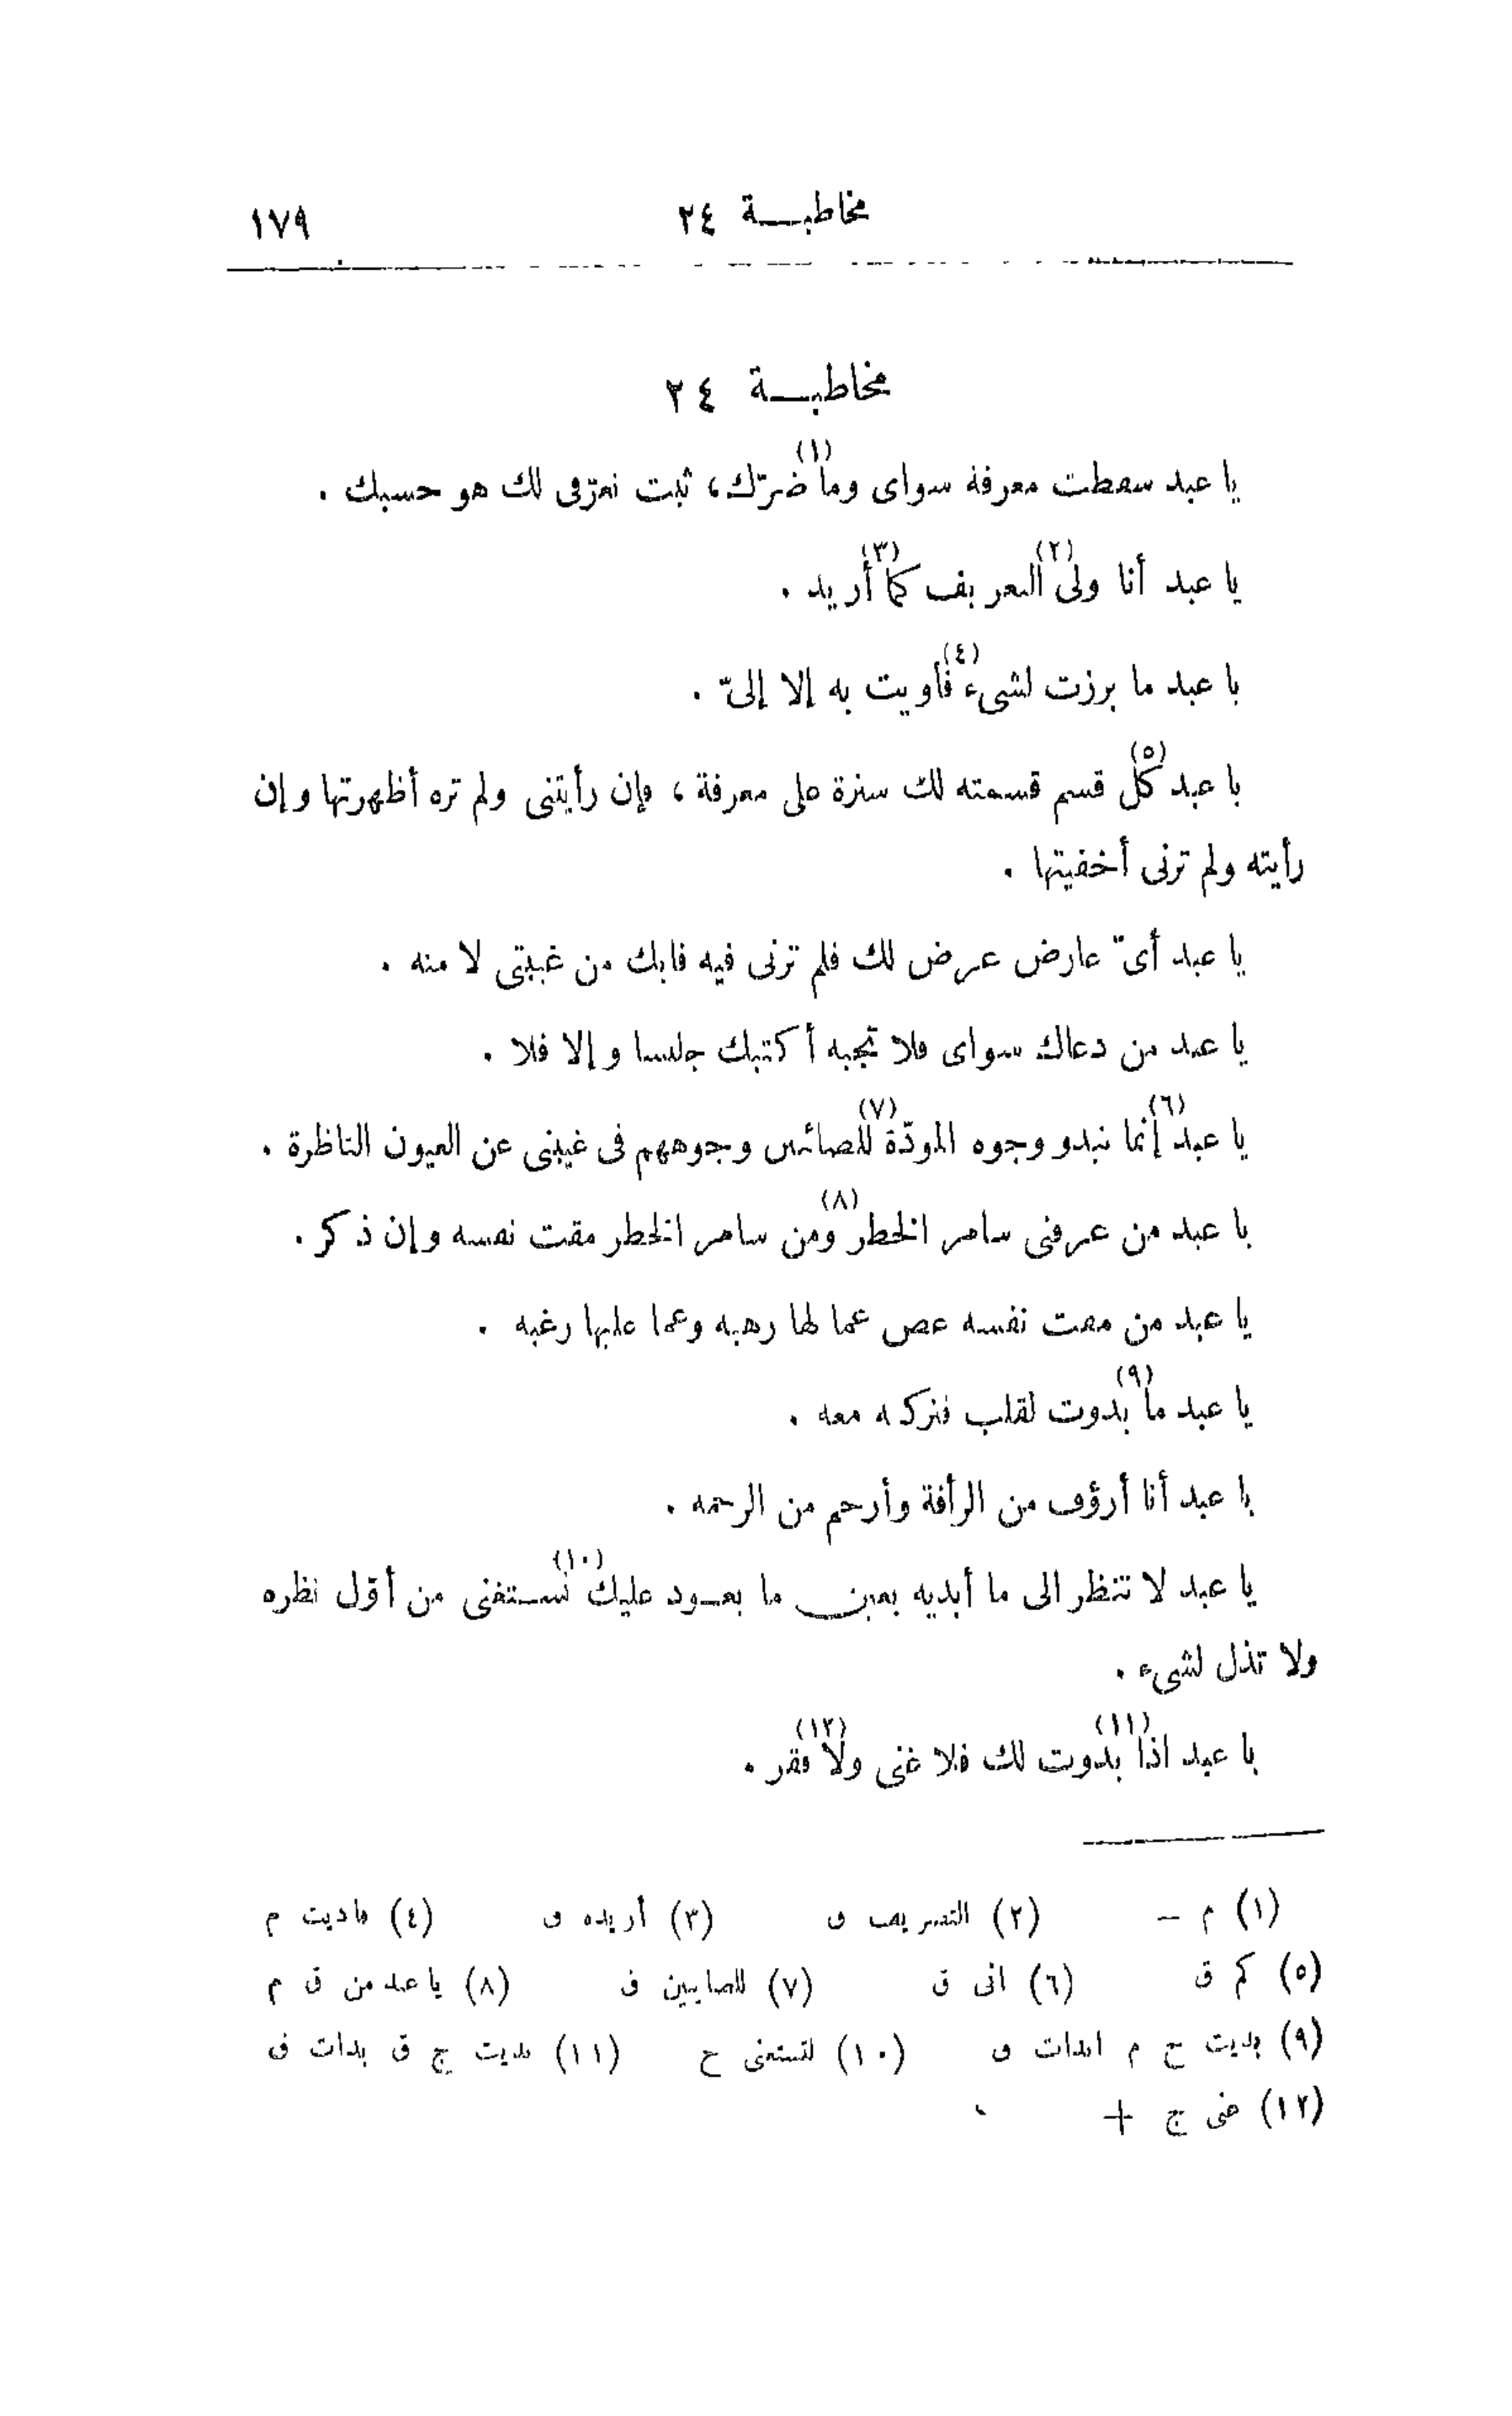 مخاطبة ٢٤ ١٧٩
مخاطبة ٢٤
يا عبد سقطت معرفة سواى وما(١) ضرّك، ثبت تعرّفى لك هو حسبك .
يا عبد أنا ولى(٢) التعريف كما(٣) أريد .
يا عبد ما برزت لشىء(٤) فأويت به إلا إلىّ .
يا عبد كل(٥) قسم قسمته لك سترة على معرفة، فإن رأيتنى ولم تره أظهرتها وإن
رأيته ولم ترنى أخفيتها .
يا عبد أىّ عارض عرض لك فلم ترنى فيه فابك من غيبتى لا منه .
يا عبد من دعاك سواى فلا تجبه أكتبك جليسا وإلا فلا .
يا عبد(٦) إنما تبدو وجوه المودّة(٧) للصائمين وجوههم فى غيبتى عن العيون الناظرة .
يا عبد من عرفنى سامر الخطر(٨) ومن سامر الخطر مقت نفسه وإن ذكر .
يا عبد من مقت نفسه غض عما لها رهبه وعما عليها رغبه .
يا عبد ما(٩) بدوت لقلب فتركته معه .
يا عبد أنا أرؤف من الرأفة وأرحم من الرحمه .
يا عبد لا تنظر الى ما أبديه بعين ما يعود عليك(١٠) تستغنى من أوّل نظره
ولا تذل لشىء .
يا عبد اذا(١١) بدوت لك فلا غنى ولا(١٢) فقر .
(١) م – (٢) التصريف ق (٣) أريده ق (٤) فاديت م
(٥) كم ق (٦) انى ق (٧) للصايبين ق (٨) يا عبد من ق م
(٩) بديت ج م ابدات ق (١٠) لتستغنى ج (١١) بديت ج ق بدات ق
(١٢) غنى ج +